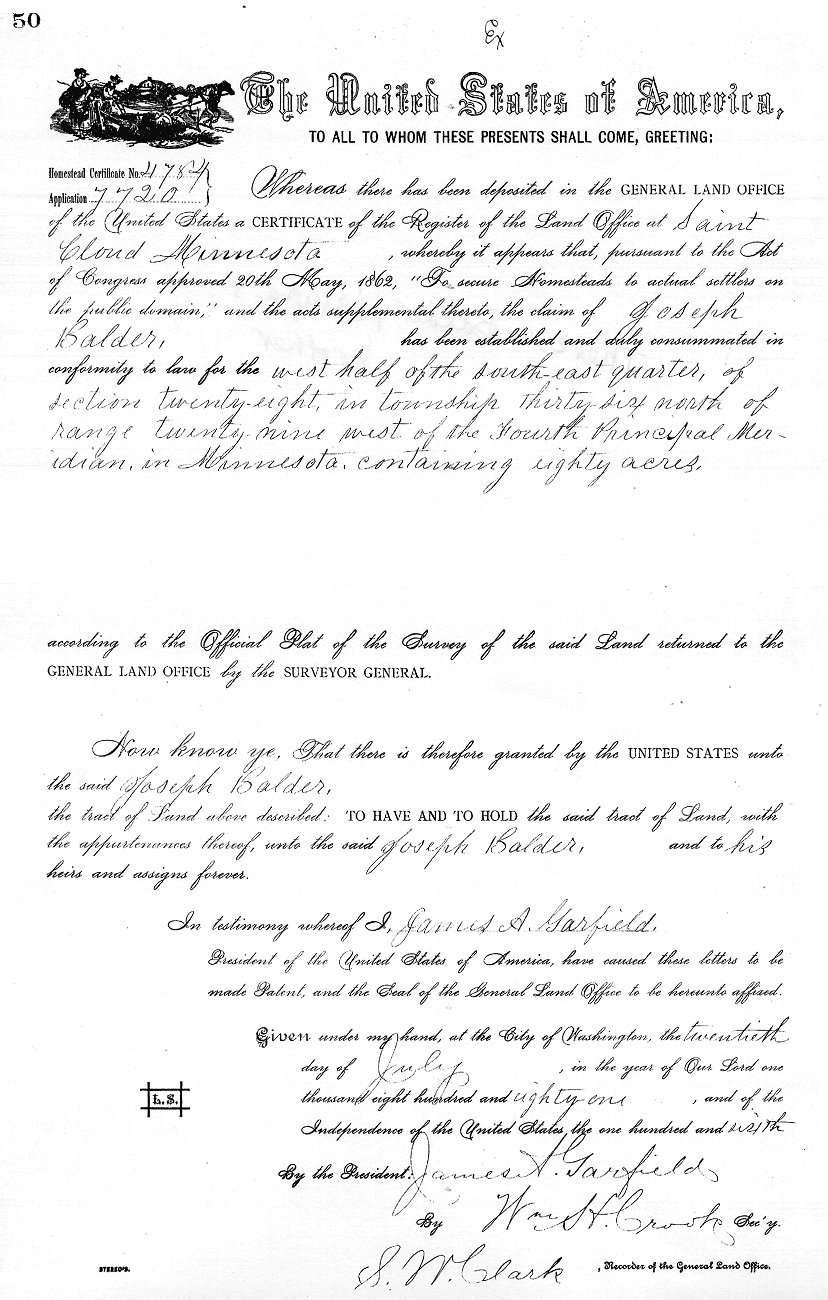 50
Ex
The United States of America,
TO ALL TO WHOM THESE PRESENTS SHALL COME, GREETING:
Homestead Certificate No. 4784
Application 7720
Whereas there has been deposited in the GENERAL LAND OFFICE
of the United States a CERTIFICATE of the Register of the Land Office at Saint
Cloud Minnesota, whereby it appears that, pursuant to the Act
of Congress approved 20th May, 1862, "To secure Homesteads to actual settlers on
the public domain," and the acts supplemental thereto, the claim of Joseph
Balder, has been established and duly consummated in
conformity to law for the west half of the south-east quarter, of
section twenty-eight, in township thirty-six north of
range twenty-nine west of the Fourth Principal Mer-
idian, in Minnesota, containing eighty acres,
according to the Official Plat of the Survey of the said Land returned to the
GENERAL LAND OFFICE by the SURVEYOR GENERAL.
Now know ye, That there is therefore granted by the UNITED STATES unto
the said Joseph Balder,
the tract of Land above described: TO HAVE AND TO HOLD the said tract of Land, with
the appurtenances thereof, unto the said Joseph Balder, and to his
heirs and assigns forever.
In testimony whereof I, James A. Garfield,
President of the United States of America, have caused these letters to be
made Patent, and the Seal of the General Land Office to be hereunto affixed.
Given under my hand, at the City of Washington, the twentieth
day of July, in the year of Our Lord one
thousand eight hundred and eighty-one, and of the
L.S.
Independence of the United States the one hundred and sixth
By the President: James A. Garfield
By Wm H. Crook Sec'y.
S. W. Clark, Recorder of the General Land Office.
STEREO'S.